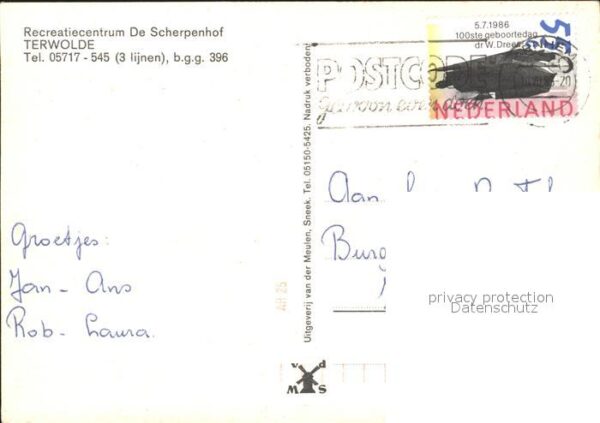 Recreatiecentrum De Scherpenhof
TERWOLDE
Tel. 05717 - 545 (3 lijnen), b.g.g. 396
5.7.1986
100ste geboortedag
dr W. Drees
55
POSTCODE
gewoon even doen
NEDERLAND
Uitgeverij van der Meulen, Sneek. Tel. 05150-5425. Nadruk verboden
Aan
Burg
Groetjes:
Jan - Ans
Rob - Laura.
privacy protection
Datenschutz